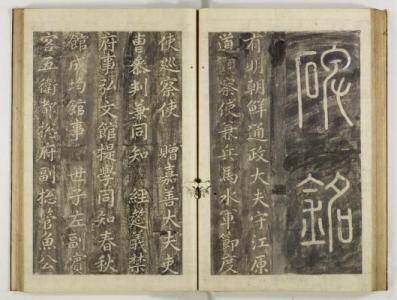 碑銘
有明朝鮮通政大夫守江原
道觀察使兼兵馬水軍節度
使巡察使 贈嘉善大夫吏
曹叅判兼同知 經筵義禁
府事弘文館提學同知春秋
館成均館事 世子左副賓
客五衛都捴府副捴管魚公